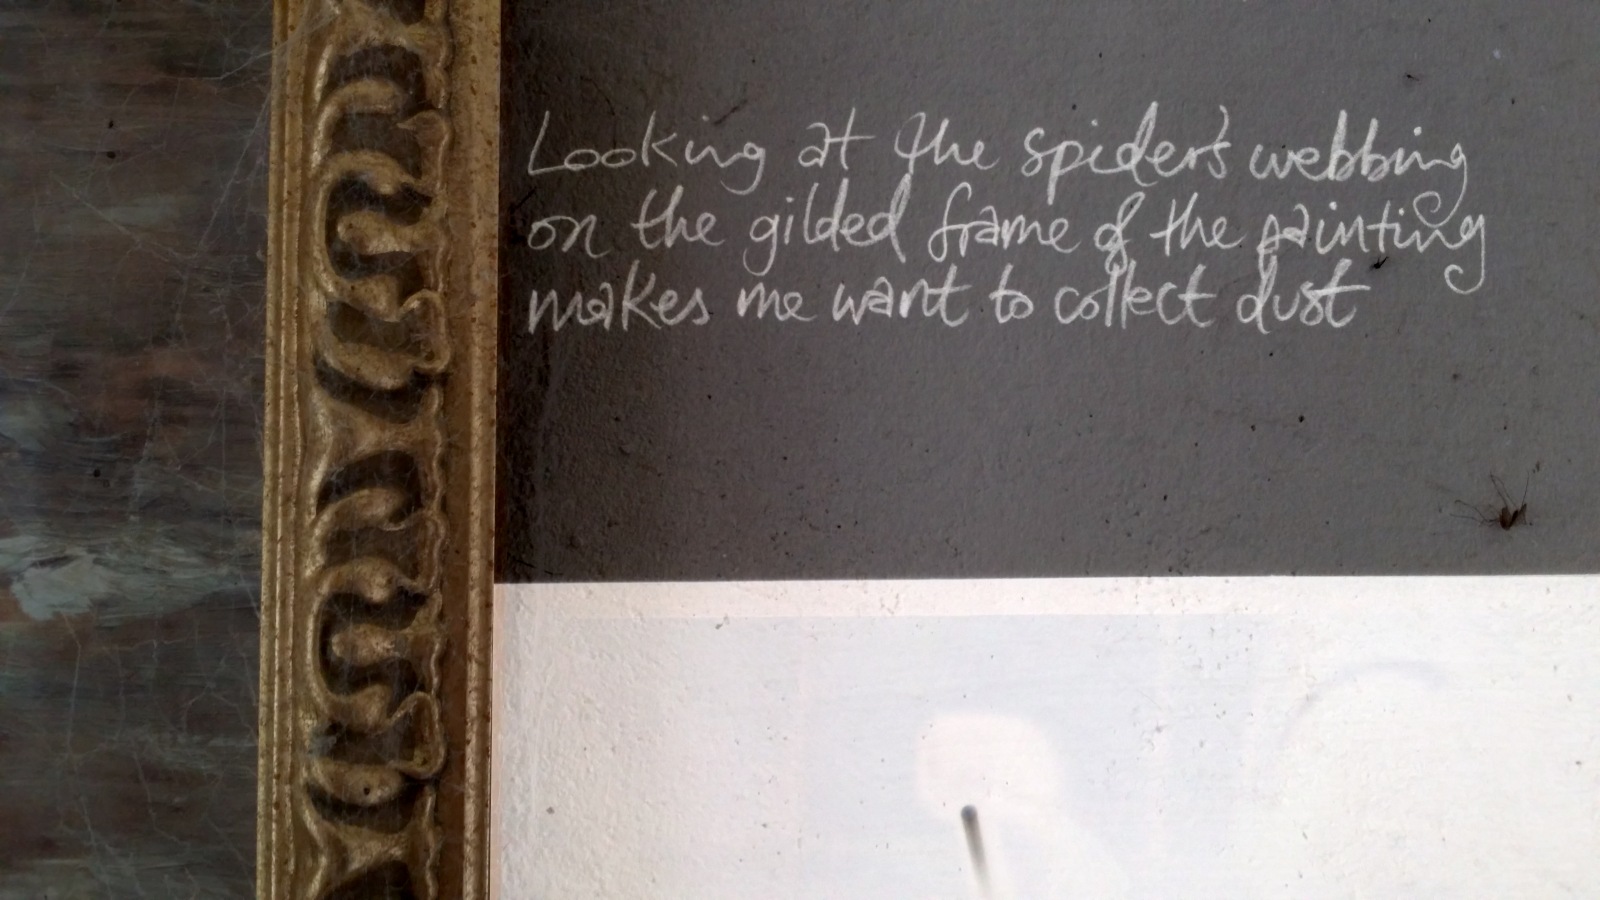 Looking at the spider's webbing
on the gilded frame of the painting
makes me want to collect dust